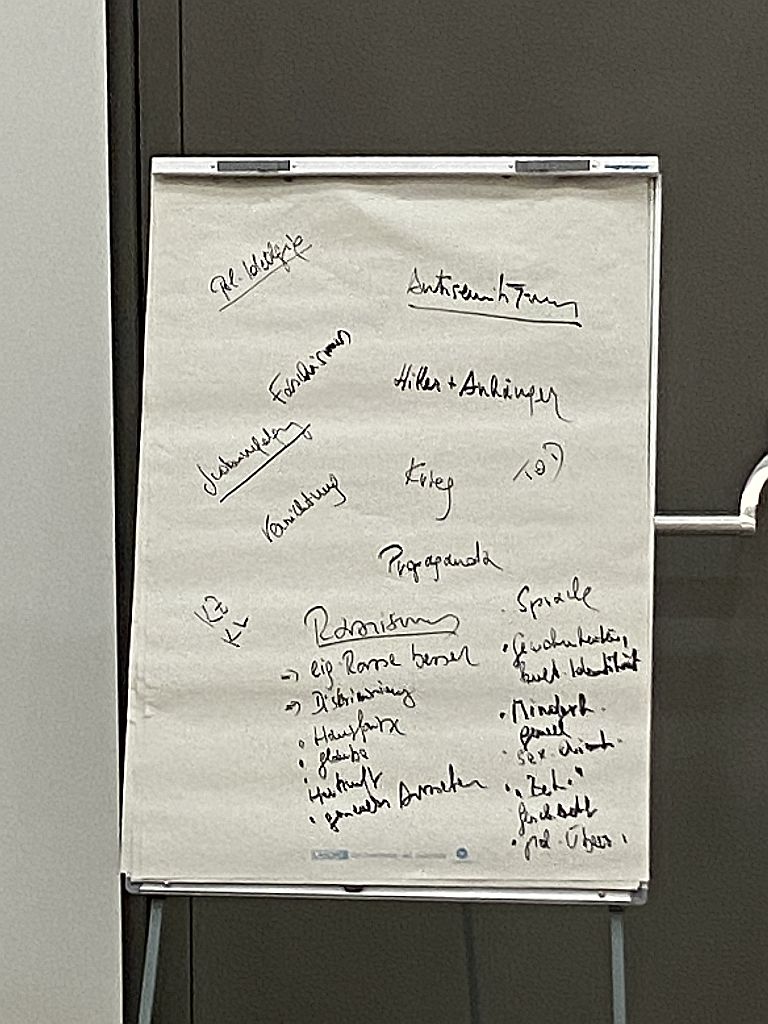 Pol. Ideologie
Antisemitismus
Faschismus
Hitler + Anhänger
Judenverfolgung
Krieg
TOD
Vernichtung
Propaganda
KZ
KL
Rassismus
→ eig. Rasse besser
→ Diskriminierung
• Hautfarbe
• Glaube
• Herkunft
• generelles Aussehen
• Sprache
• Gewohnheiten,
kult. Identität
• Minderh.
generell
• sex. Orient.
• "Beh."
Geschlecht
• pol. Überz.